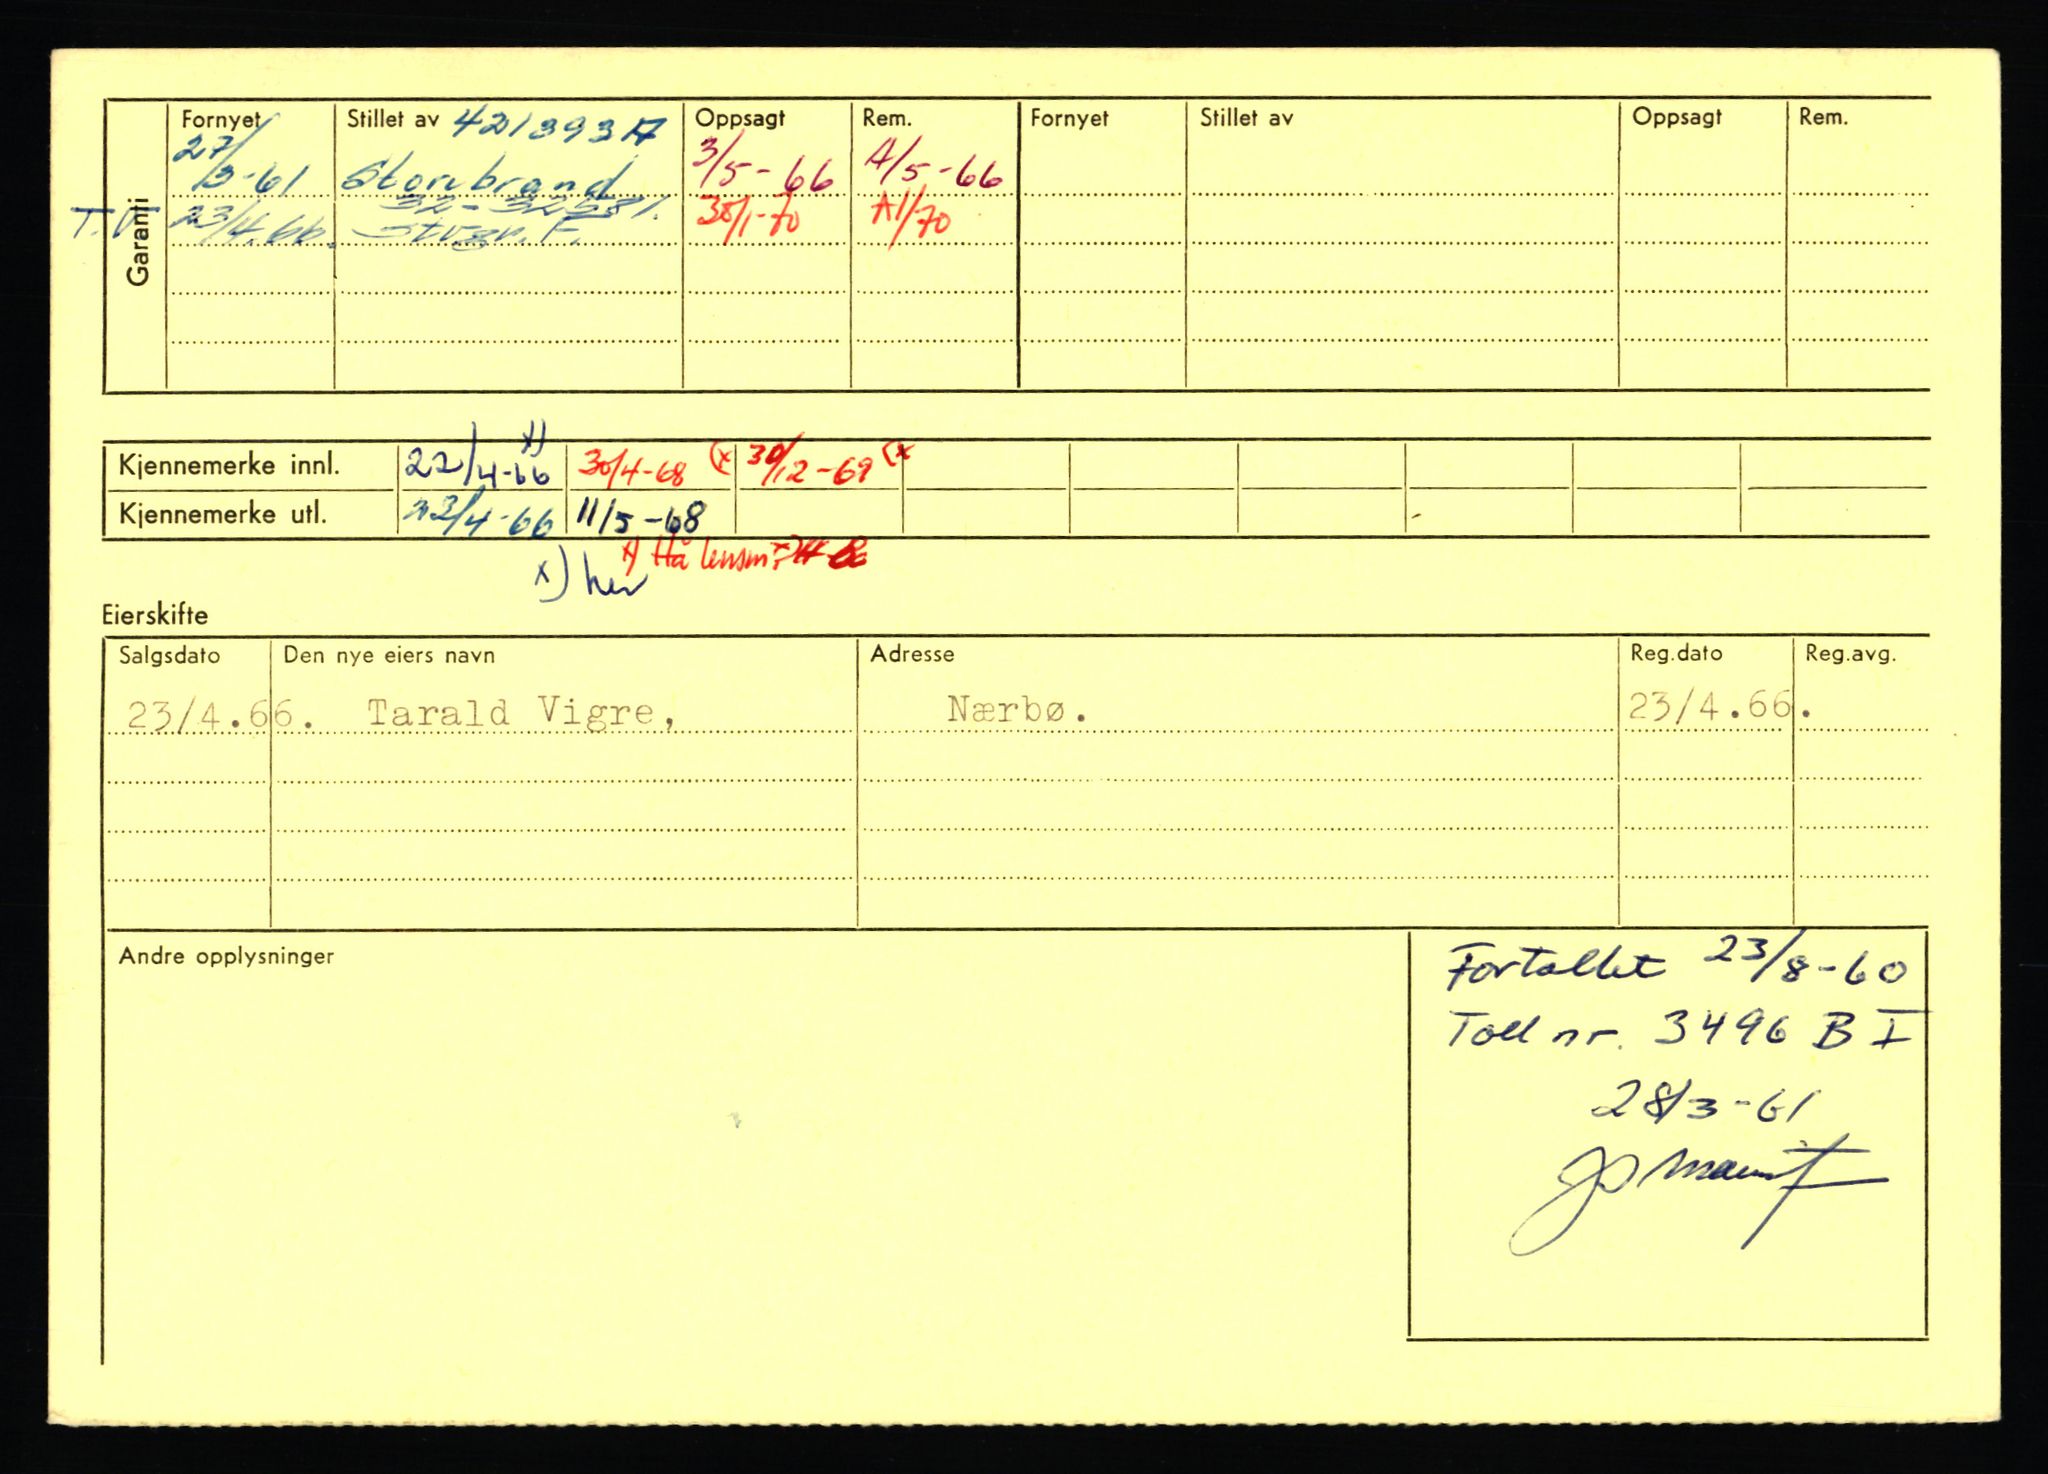 Fornyet Stillet av 421393 A Oppsagt Rem. Fornyet Stillet av Oppsagt Rem.
27/
/3-61 Storebrand 3/5-66 A/5-66
32-32581. 30/1-70 A1/70
T.V 23/4.66. F.
Garanti
x)
Kjennemerke innl. 22/4-66 30/4-68 (x 30/12-69 (x
Kjennemerke utl. 23/4-66 11/5-68
x) Hå lensm.
x) her
Eierskifte
Salgsdato Den nye eiers navn Adresse Reg.dato Reg.avg.
23/4.66. Tarald Vigre, Nærbø. 23/4.66.
Andre opplysninger
Fortollet 23/8-60
Toll nr. 3496 B I
28/3-61